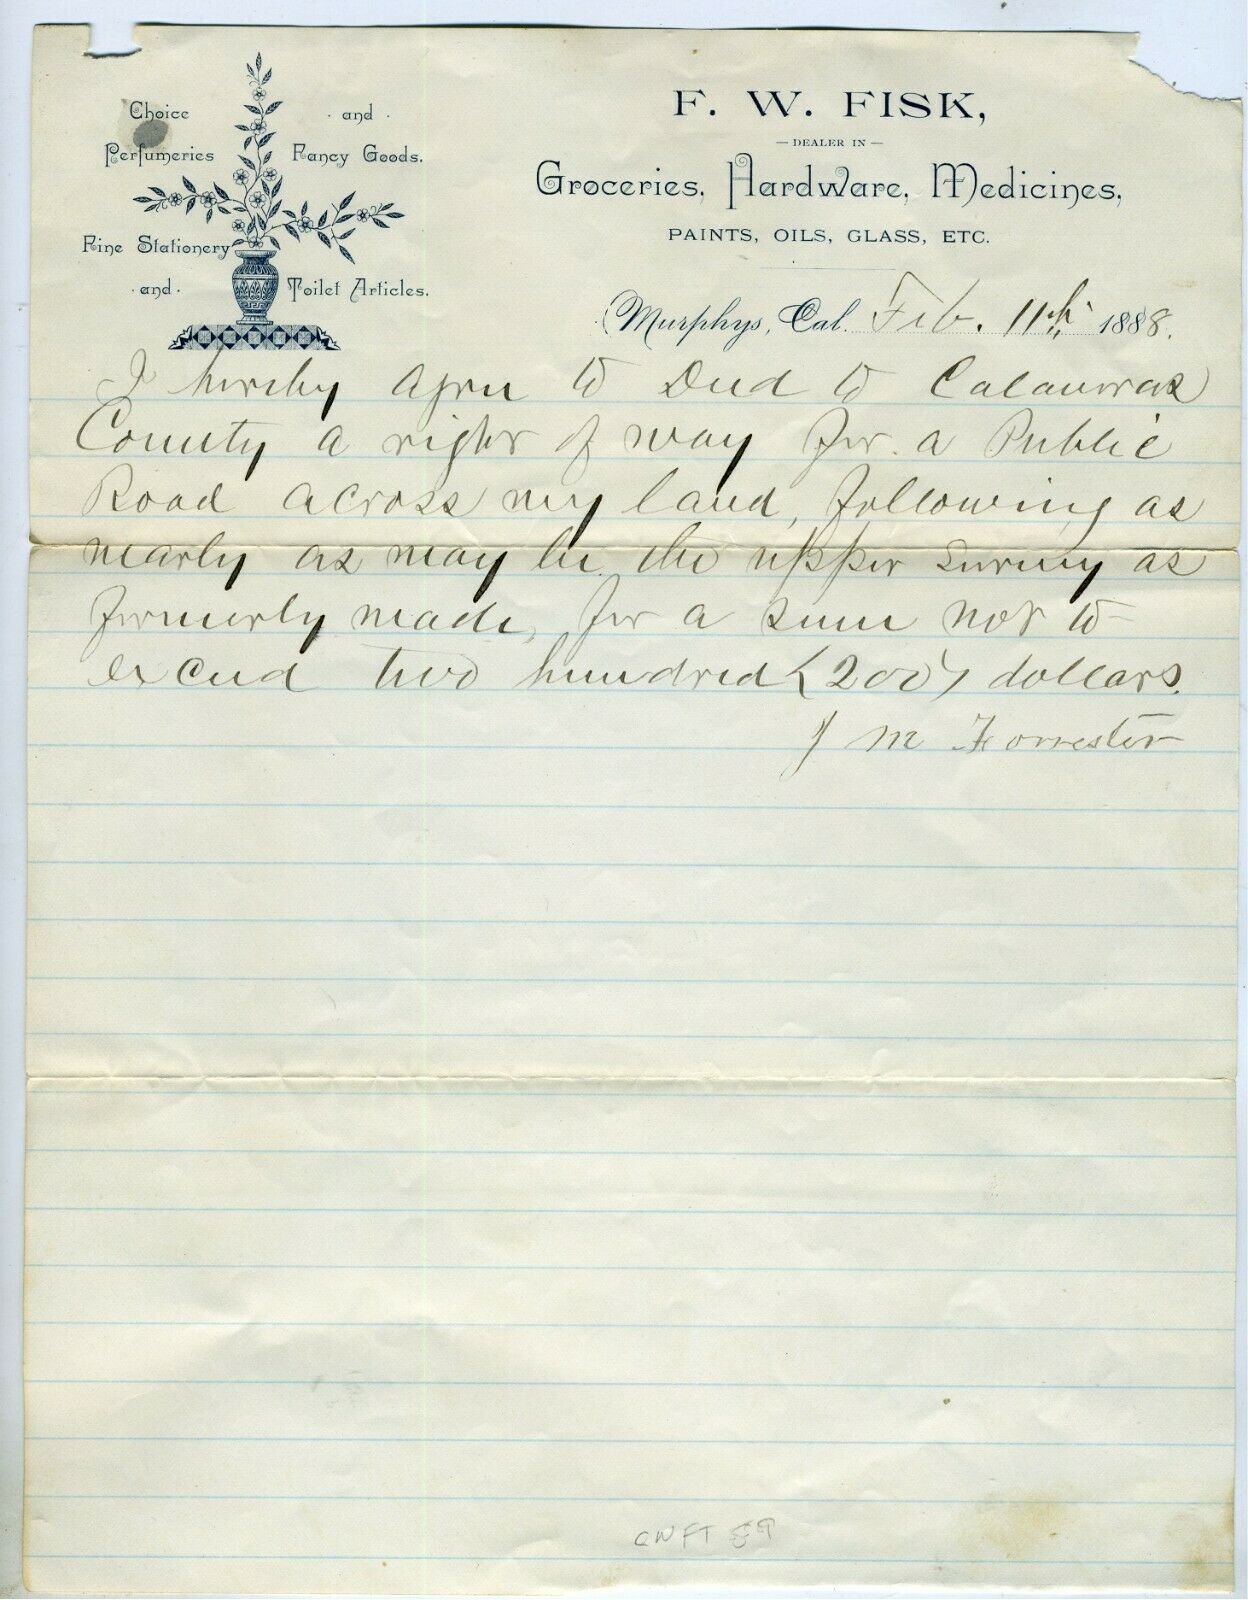 Choice and
Perfumeries Fancy Goods.
Fine Stationery
and Toilet Articles.
F. W. FISK,
— DEALER IN —
Groceries, Hardware, Medicines,
PAINTS, OILS, GLASS, ETC.
Murphys, Cal. Feb. 11th 1888.
I hereby agree to Deed to Calaveras
County a right of way for a Public
Road across my land, following as
nearly as may be the upper survey as
formerly made, for a sum not to
exceed two hundred (200) dollars.
J M Forrester